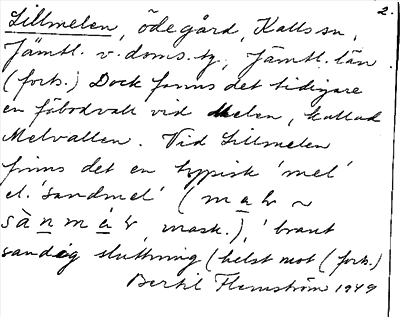 2.
Lillmelen, ödegård, Kalls sn,
Jämtl. v. doms.ty, Jämtl. län.
(forts.) Dock fanns det tidigare
en fäbodvall vid Melen, kallad
Melvallen. Vid Lillmelen
finns det en typisk 'mel'
el. 'sandmel' (
mask.), 'brant
sandig sluttning (helst mot (forts.)
Bertil Flemström 1949